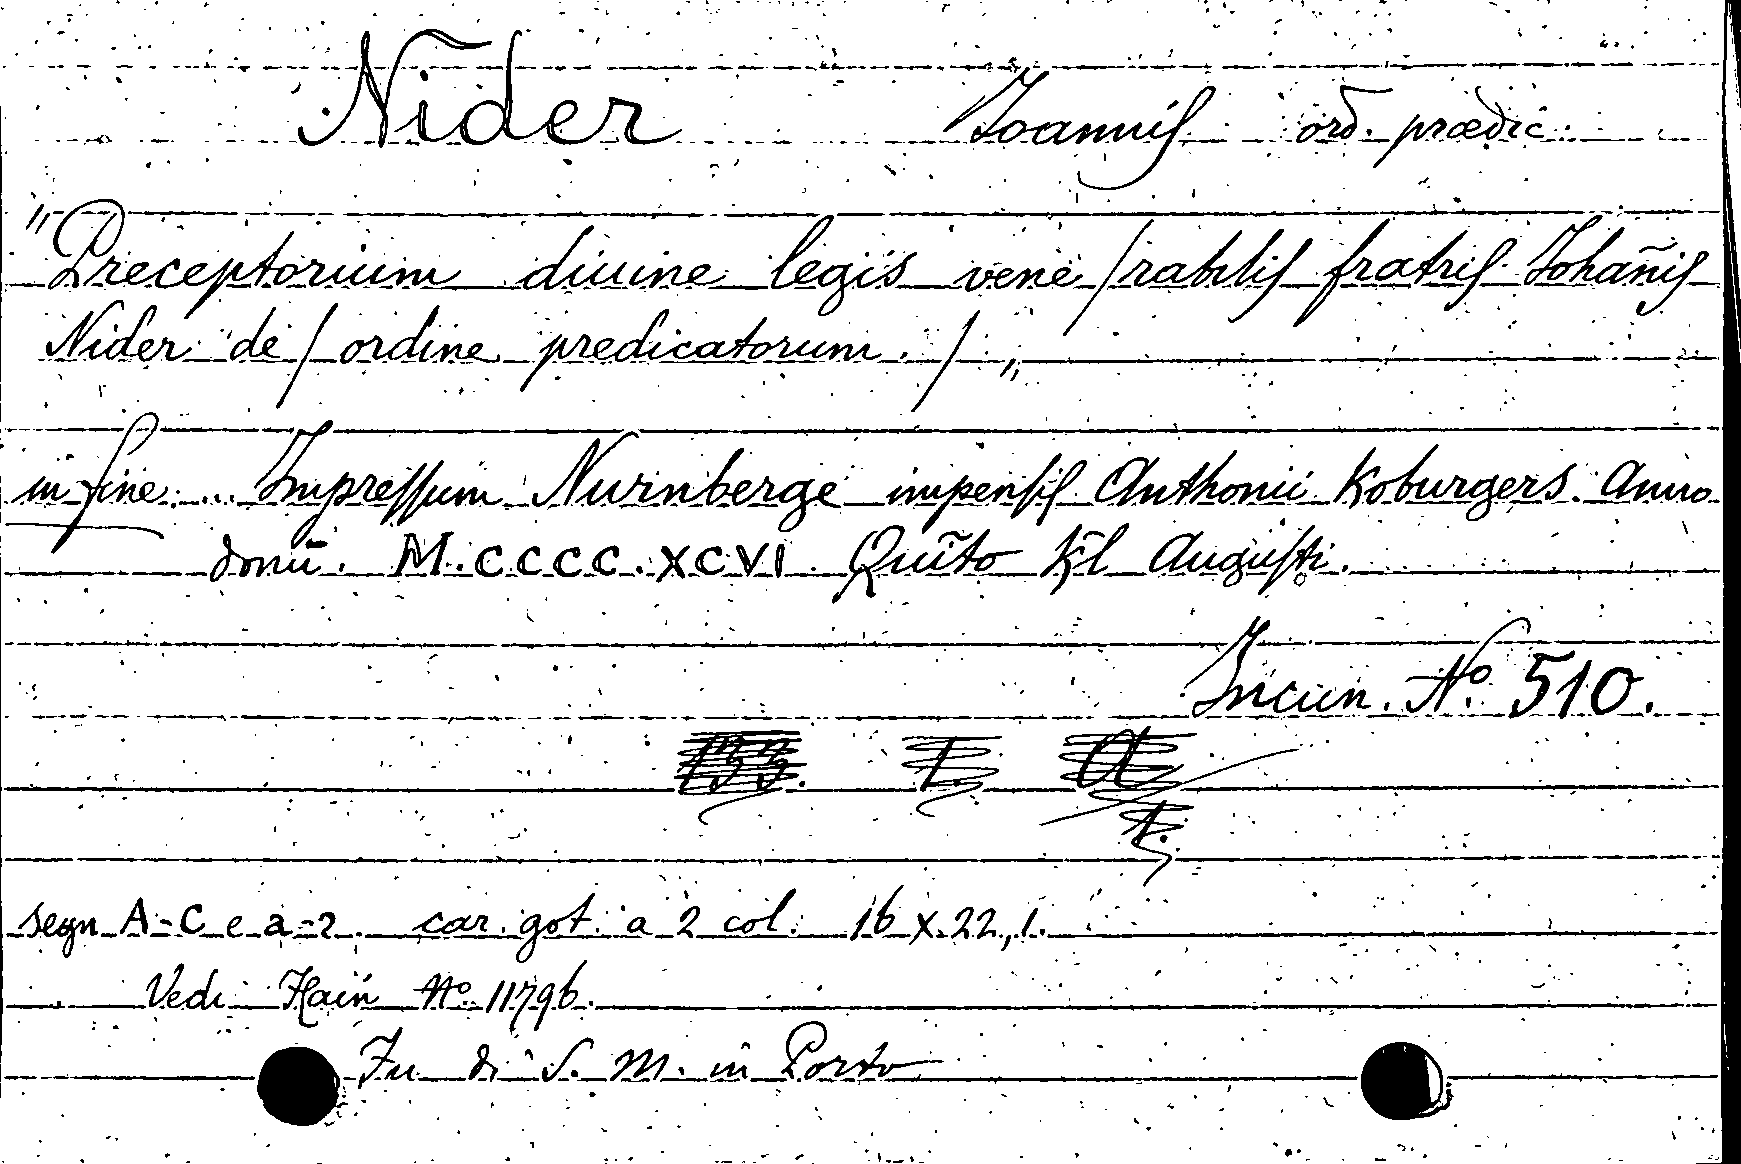 Nider Joannis ord. prædic.
"Preceptorium diuine legis vene/rabilis fratris Johañis
Nider de / ordine predicatorum. / „
in fine: ... Impressum Nurnberge impensis Anthonii Koburgers. Anno
domi. M.CCCC.XCVI. Quĩto Kl Augusti.
Incun. Nº 510.
133. I. A
1.
segn A-C e a-z. car. got. a 2 col. 16 x 22,1.
Vedi Hain Nº 11796.
Fu di S. M. in Porto